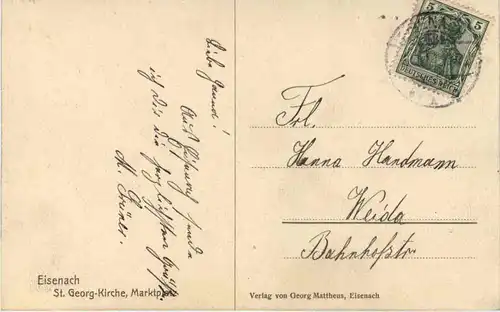 Liebe
Auf
sende
ich Dir die herzlichsten Grüße
M.
Eisenach
St. Georg-Kirche, Marktpl
5 5
DEUTSCHES REICH
Frl.
Hanna Handmann
Weida
Bahnhofstr
Verlag von Georg Mattheus, Eisenach